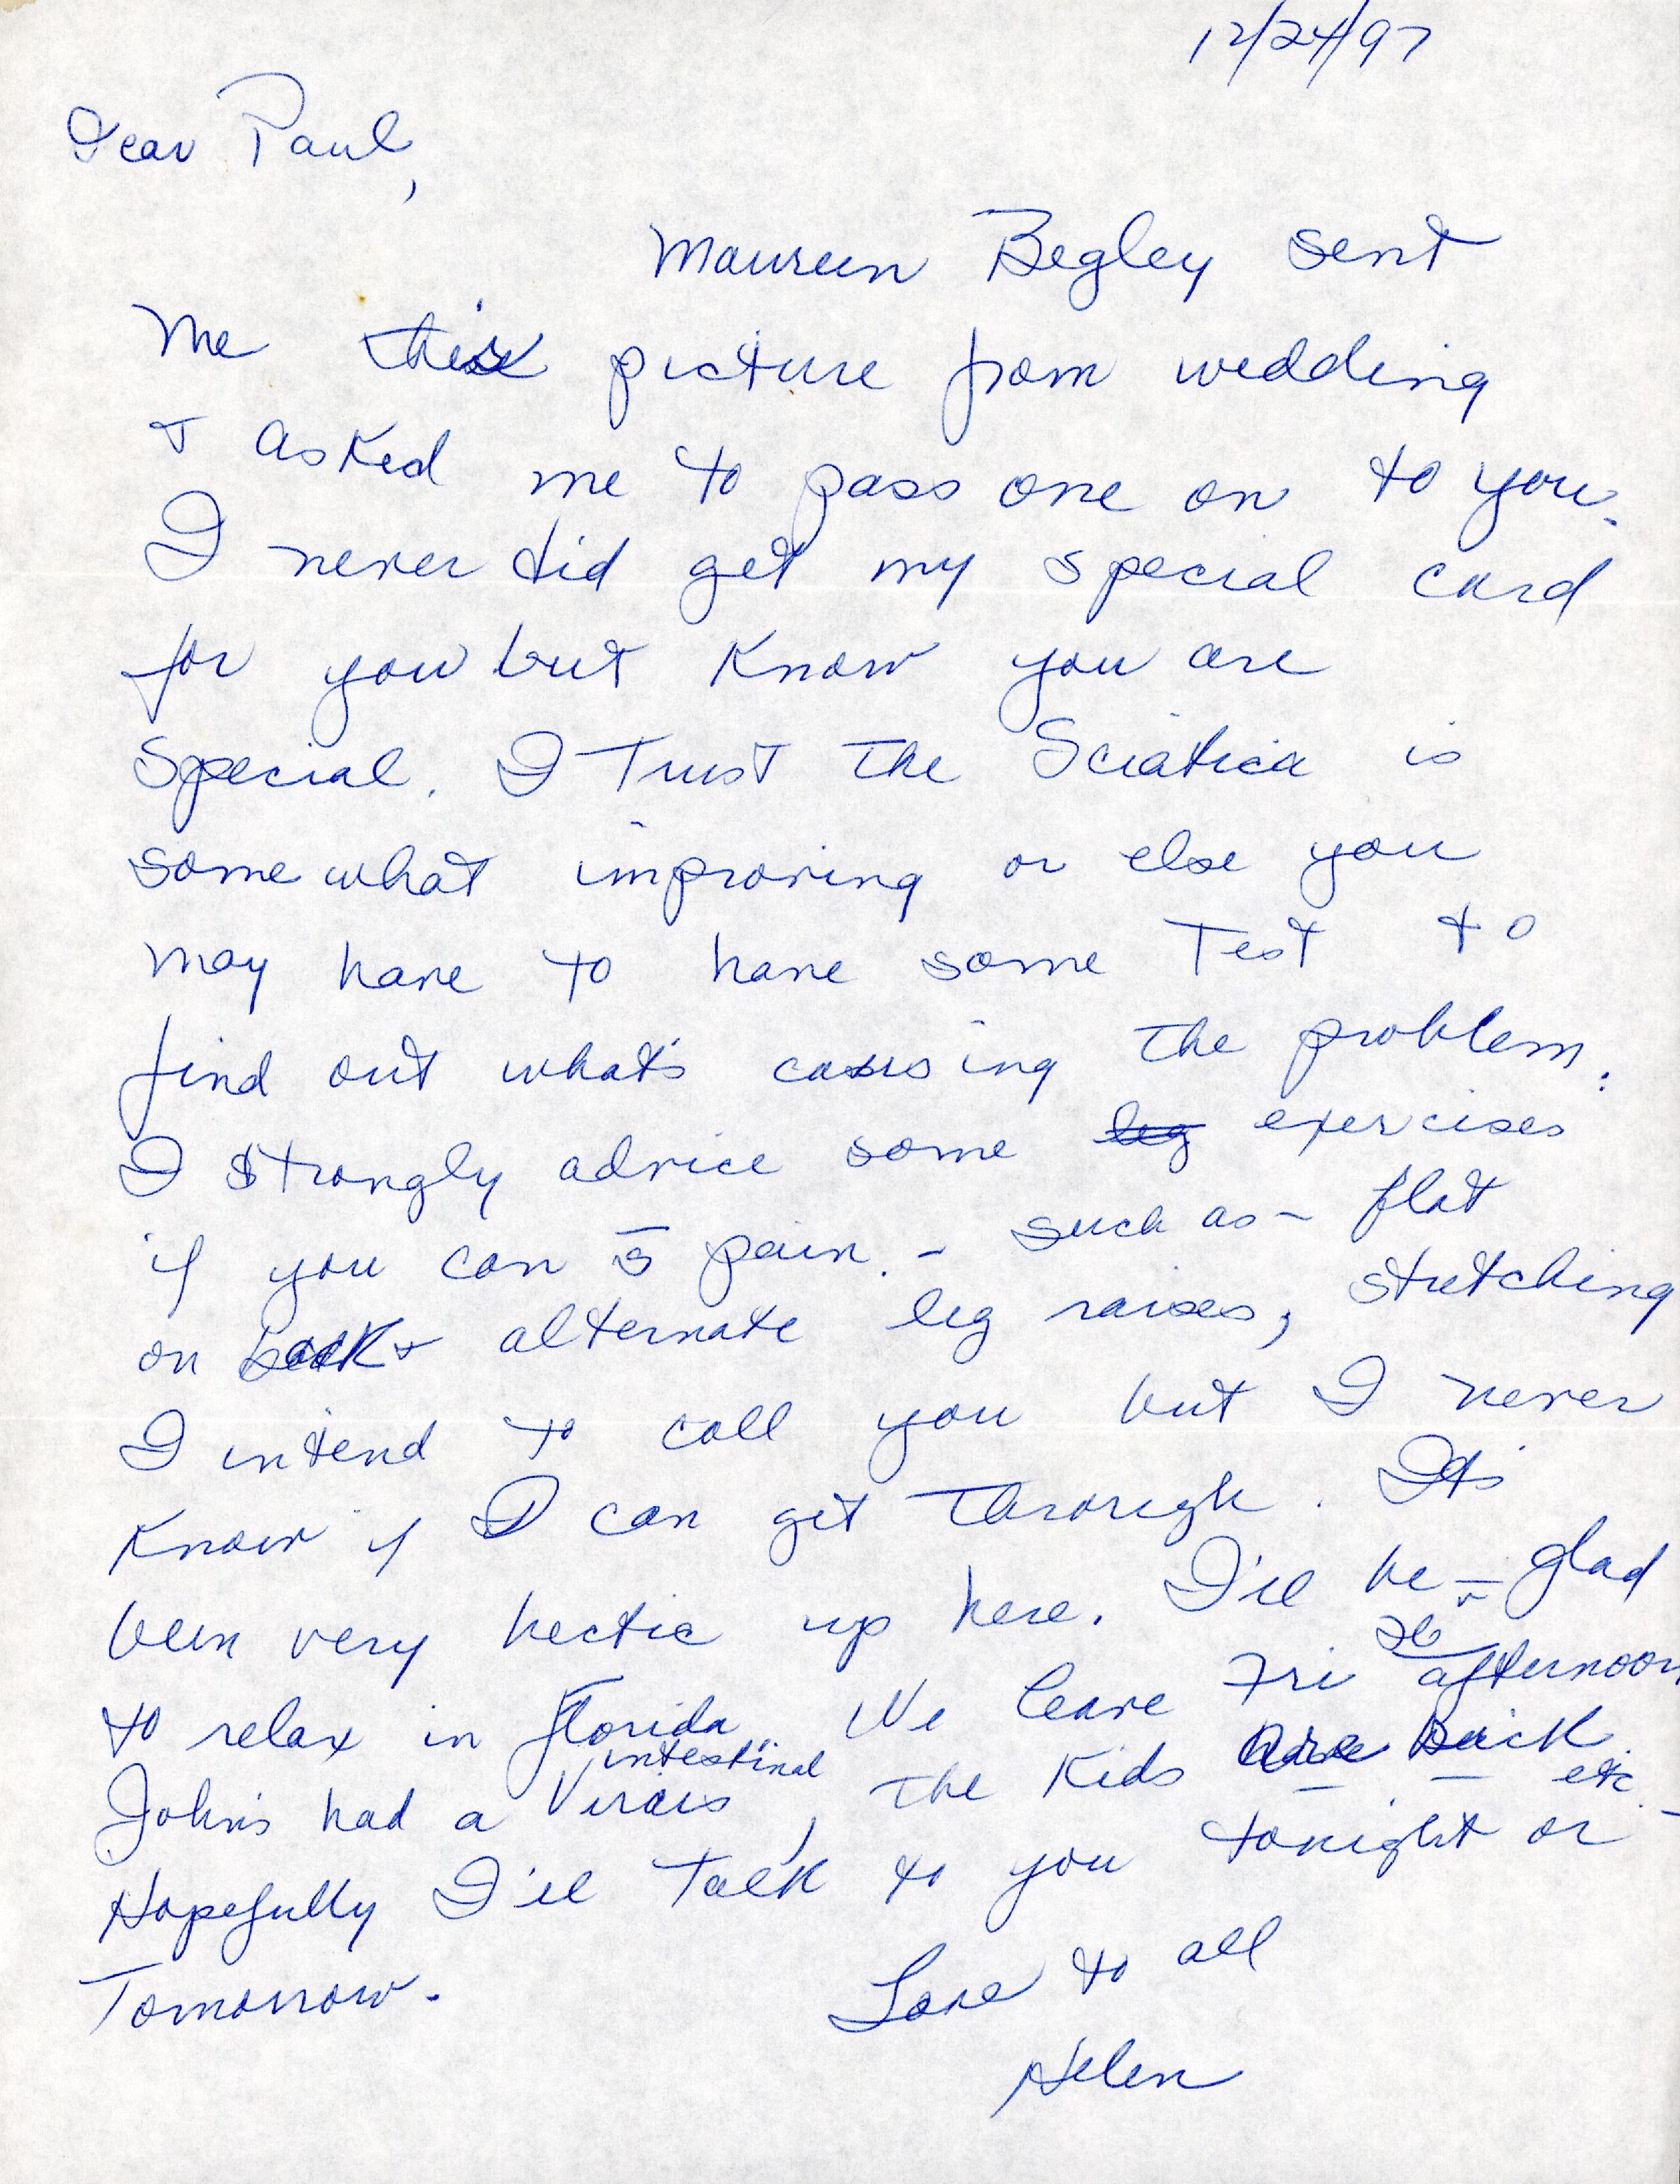 12/24/97
Dear Paul,
Maureen Begley sent
me this picture from wedding
& asked me to pass one on to you.
I never did get my special card
for you but know you are
special. I trust the Sciatica is
somewhat improving or else you
may have to have some Test to
find out what's causing the problem.
I strongly advice some leg exercises
if you can s̄ pain. - such as - flat
on back & alternate leg raises, stretching
I intend to call you but I never
know if I can get through. It's
been very hectic up here. I'll be glad
to relax in Florida We leave Fri 26 afternoon
John's had a intestinal Virus, the Kids are sick etc. -
Hopefully I'll talk to you tonight or
Tomorrow.
Love to all
Helen